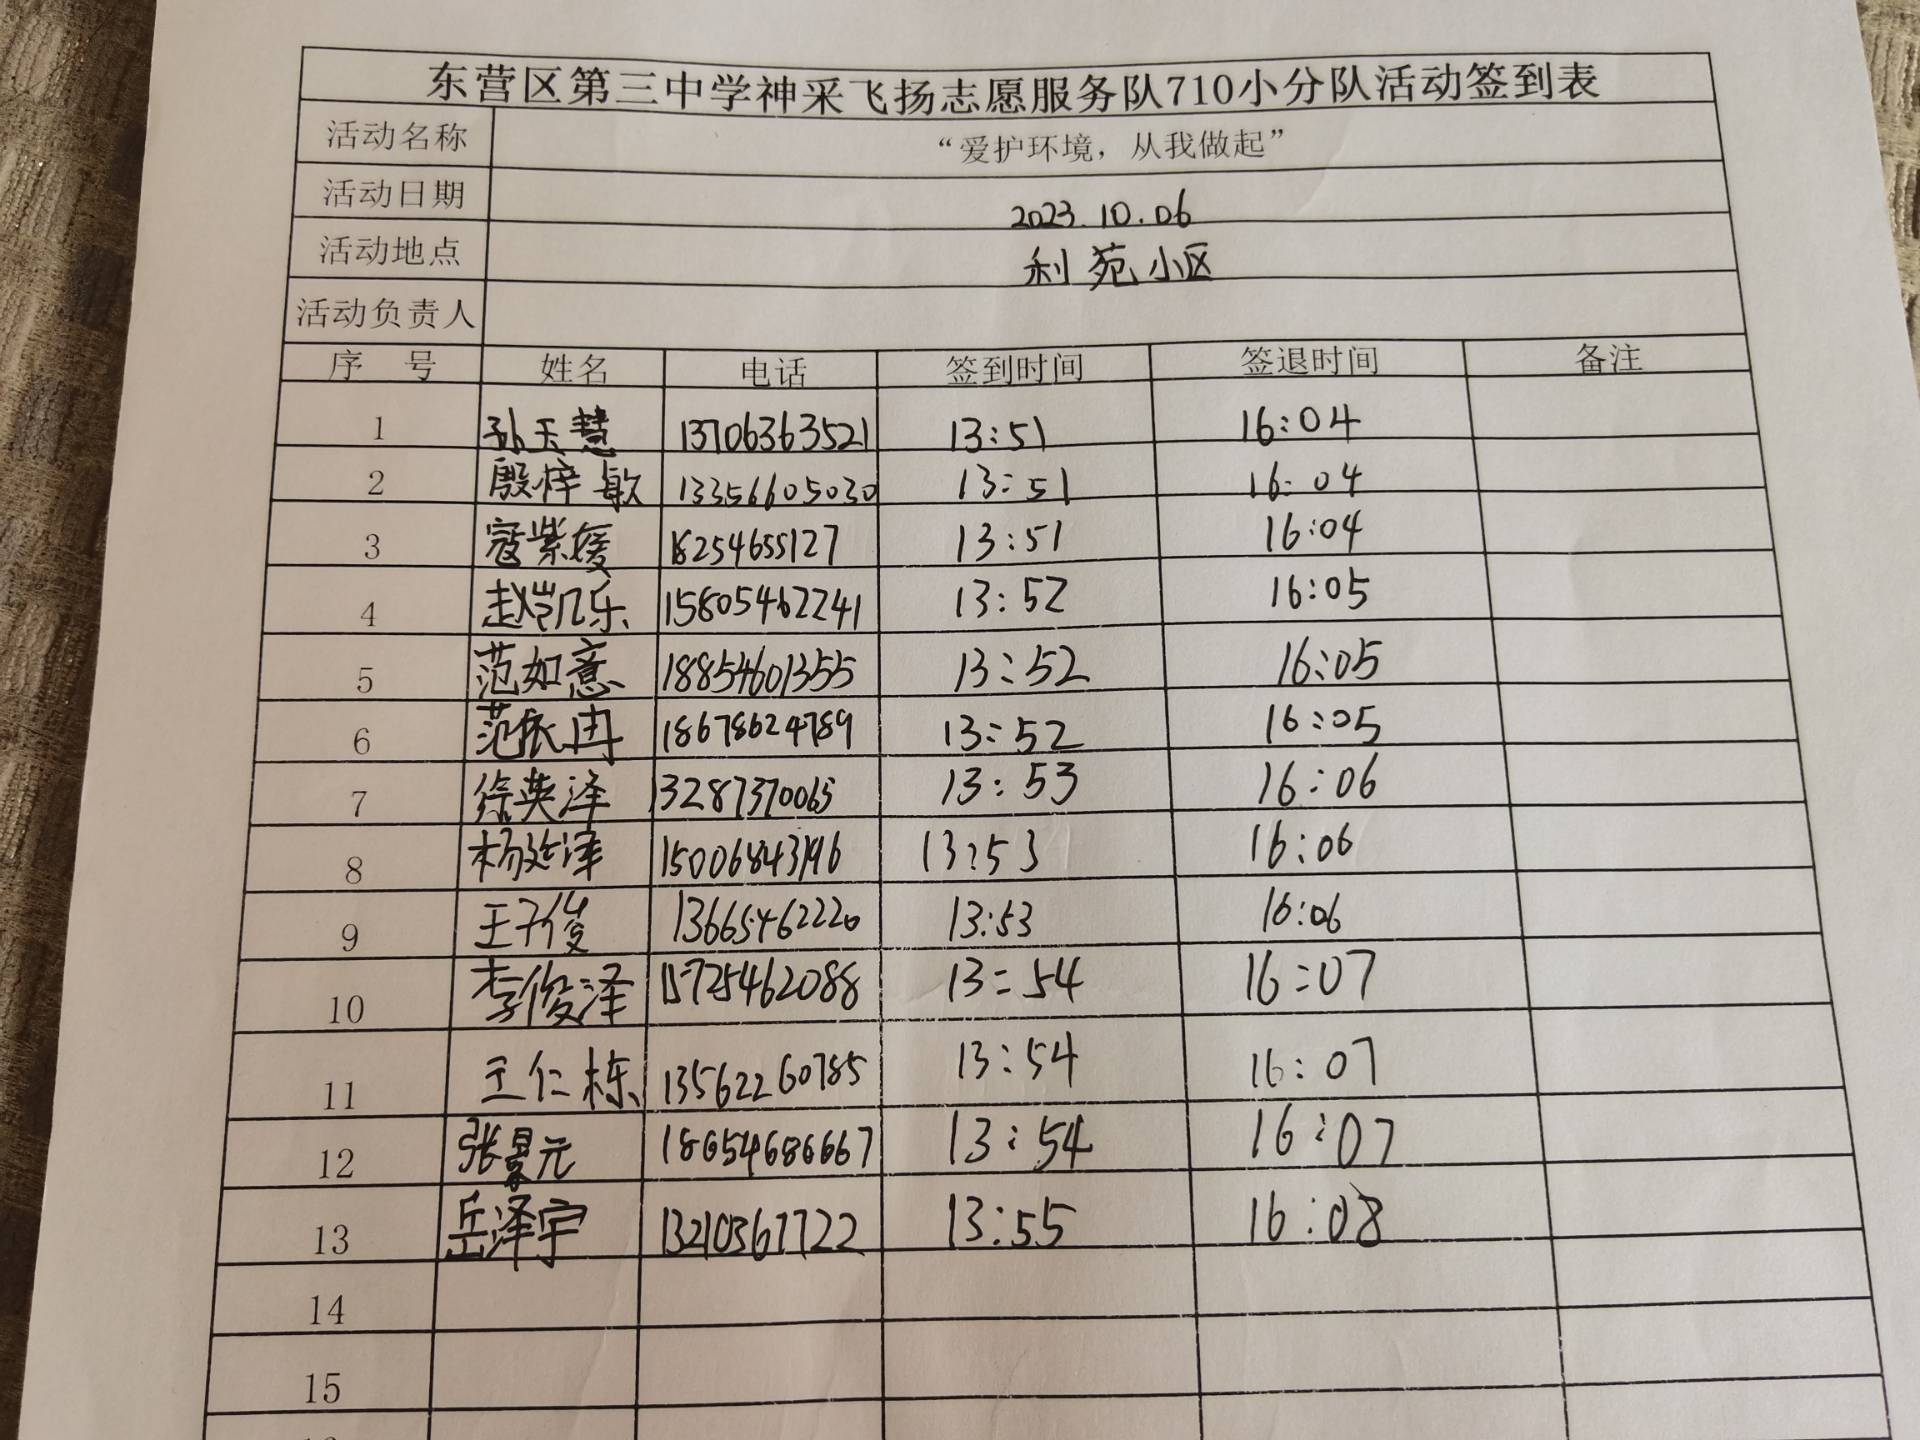 东营区第三中学神采飞扬志愿服务队710小分队活动签到表
活动名称 “爱护环境，从我做起”
活动日期 2023.10.06
活动地点 利苑小区
活动负责人
序 号 姓名 电话 签到时间 签退时间 备注
1 孙玉慧 13706363521 13:51 16:04
2 殷梓敏 13356605030 13:51 16:04
3 寇紫媛 18254655127 13:51 16:04
4 赵凯乐 15805462241 13:52 16:05
5 范如意 18854601355 13:52 16:05
6 范依冉 18678624789 13:52 16:05
7 徐英泽 13287370065 13:53 16:06
8 杨延泽 15006843196 13:53 16:06
9 王子俊 13665462220 13:53 16:06
10 李俊泽 15725462088 13:54 16:07
11 王仁栋 13562260785 13:54 16:07
12 张景元 18654686667 13:54 16:07
13 岳泽宇 13210367722 13:55 16:08
14
15